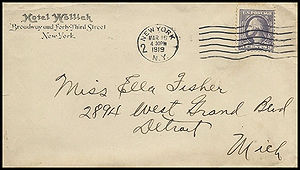 Hotel Wallick
Broadway and Forty-Third Street
New York.
NEW YORK
2
MAR 16
4 30 PM
1919
N.Y.
U.S. POSTAGE
Miss Ella Fisher
2894 West Grand Blvd
Detroit
Mich